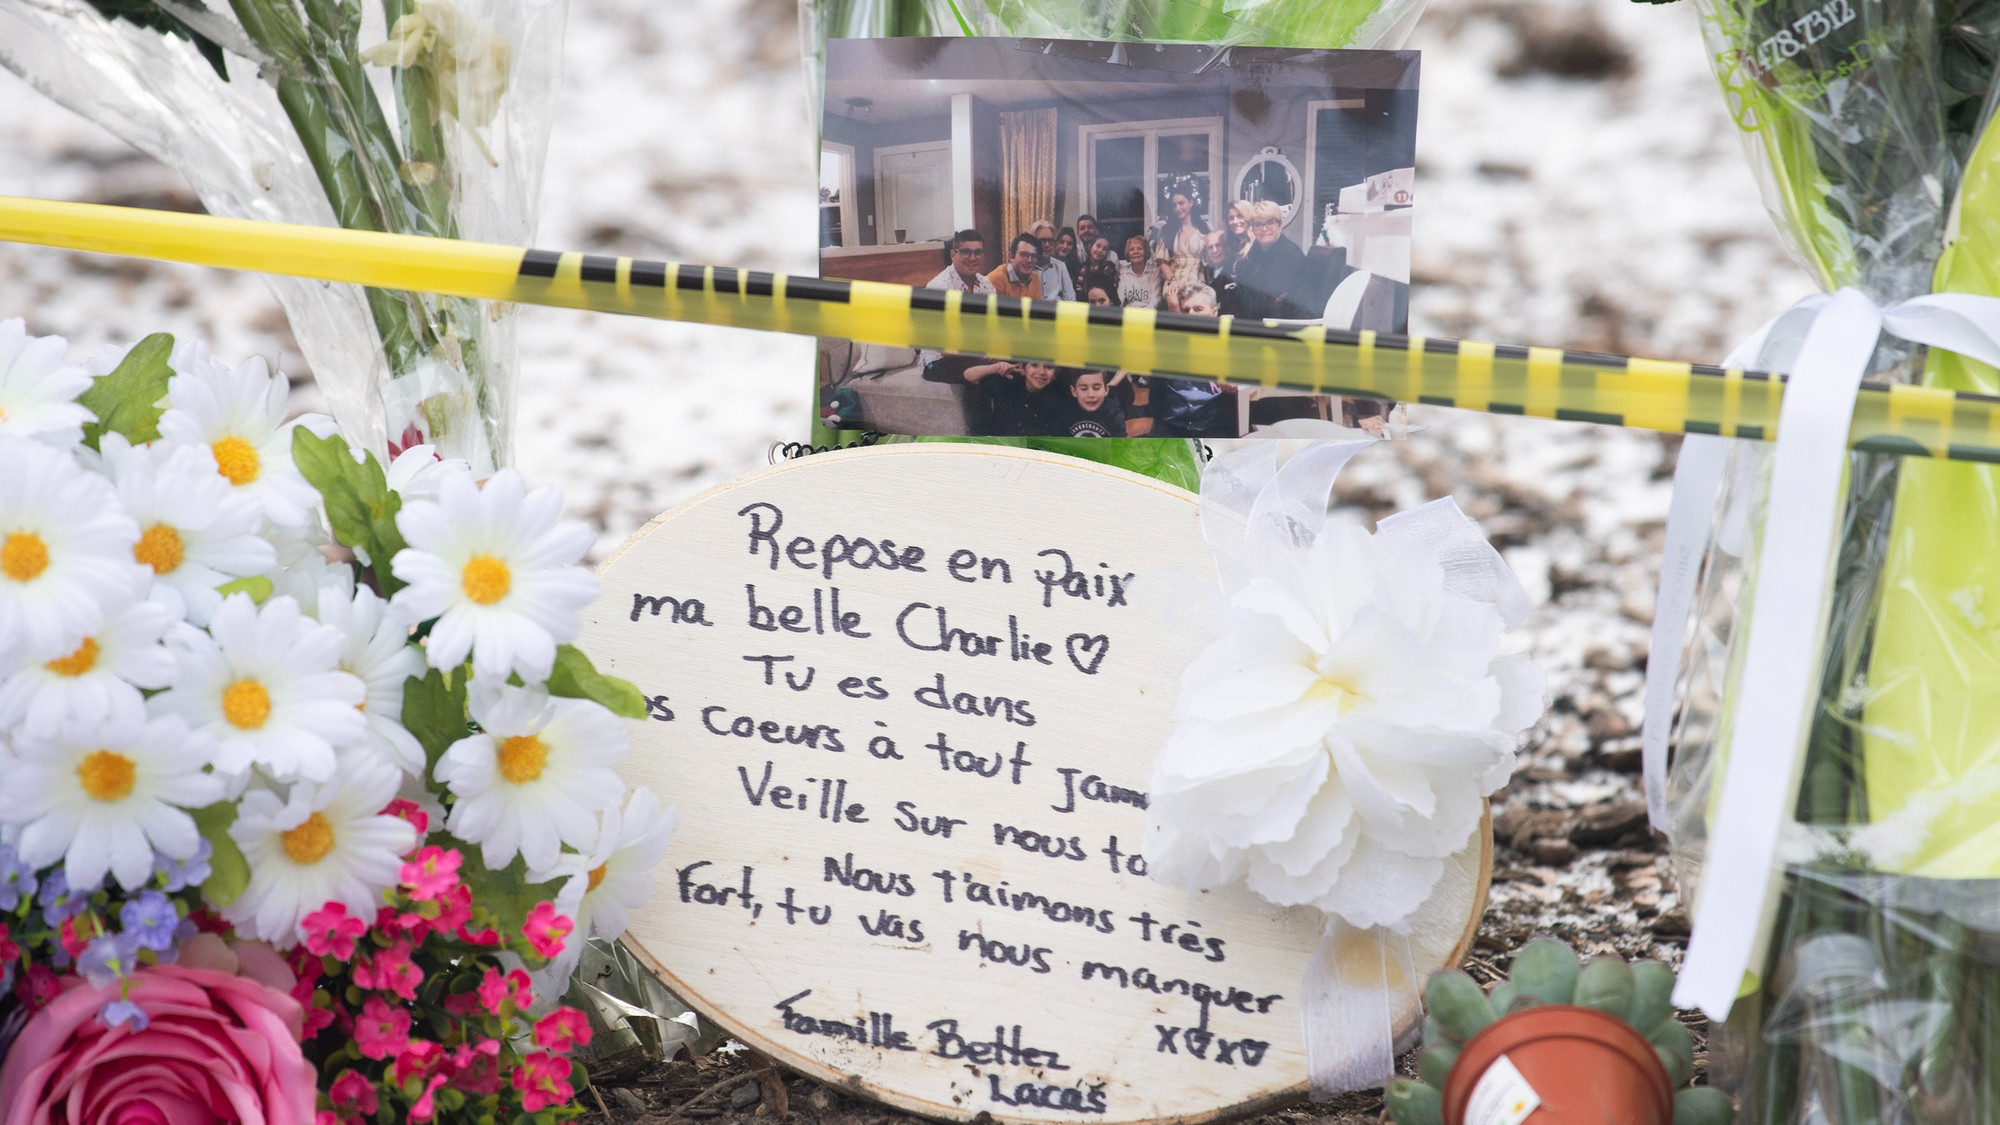 478.7312
Repose en paix
ma belle Charlie ♡
Tu es dans
os coeurs à tout jam
Veille sur nous to
Nous t'aimons très
Fort, tu vas nous manquer
x♡x♡
Famille Bettez
Lacas